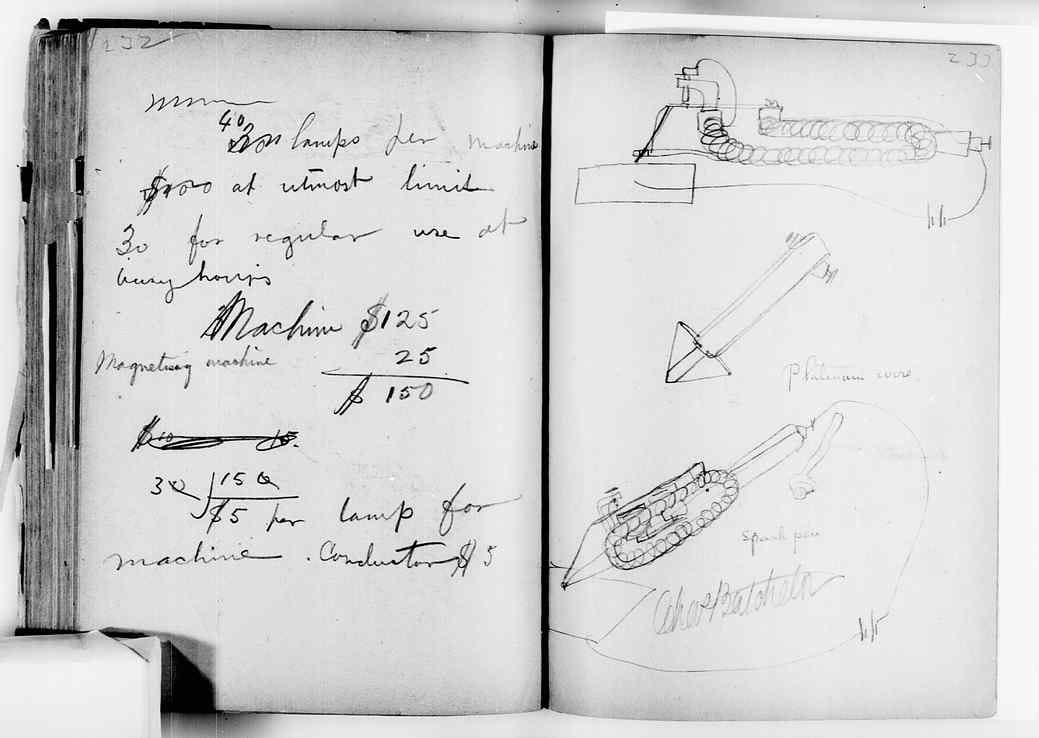 232
40
lamps per machine
$100 at utmost limit
30 for regular use at
busy hours
Machine $125
Magnetising machine 25
$ 150
$10 15.
30 150
$5 per lamp for
machine. Conductor $5
233
Platinum wire
Spark pen
Chas Batchelor